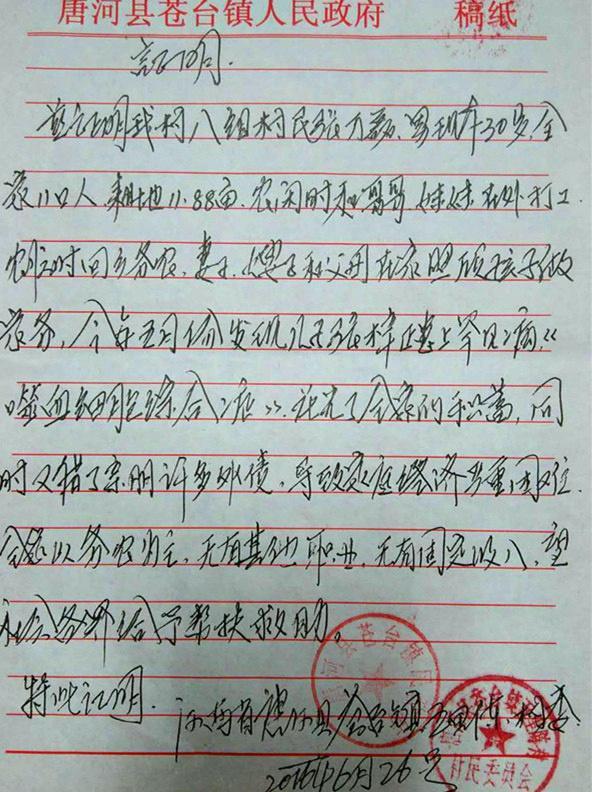 唐河县苍台镇人民政府 稿纸
证明.
兹证明我村八组村民张力,男现年30岁,全
家11口人耕地11.88亩.农闲时和哥哥、妹妹在外打工.
农忙时回乡务农,妻子、嫂子和父母在家照顾孩子做
家务,今年五月份发现儿子张梓患上罕见病“
噬血细胞综合症”.花光了全家的积蓄,同
时又借了亲朋许多外债,导致家庭经济严重困难.
全家以务农为主,无有其他职业,无有固定收入,望
社会各界给予帮扶救助。
特此证明.
河南省唐河县苍台镇 村委
2016年6月26号
河县苍台镇
村民委员会